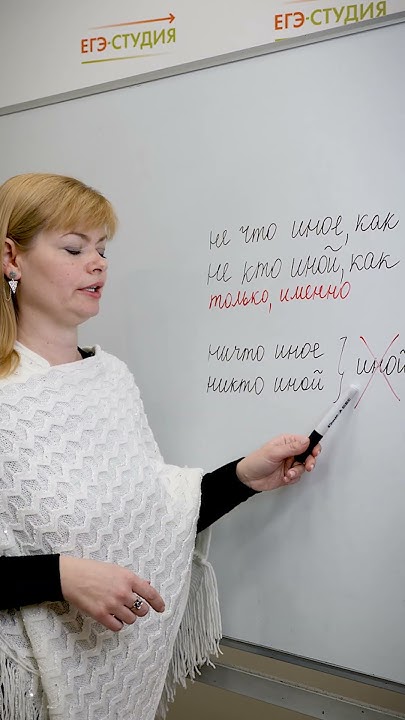 ЕГЭ-СТУДИЯ
ЕГЭ-СТУДИЯ
не что иное, как
не кто иной, как
только, именно
ничто иное
никто иной
иной